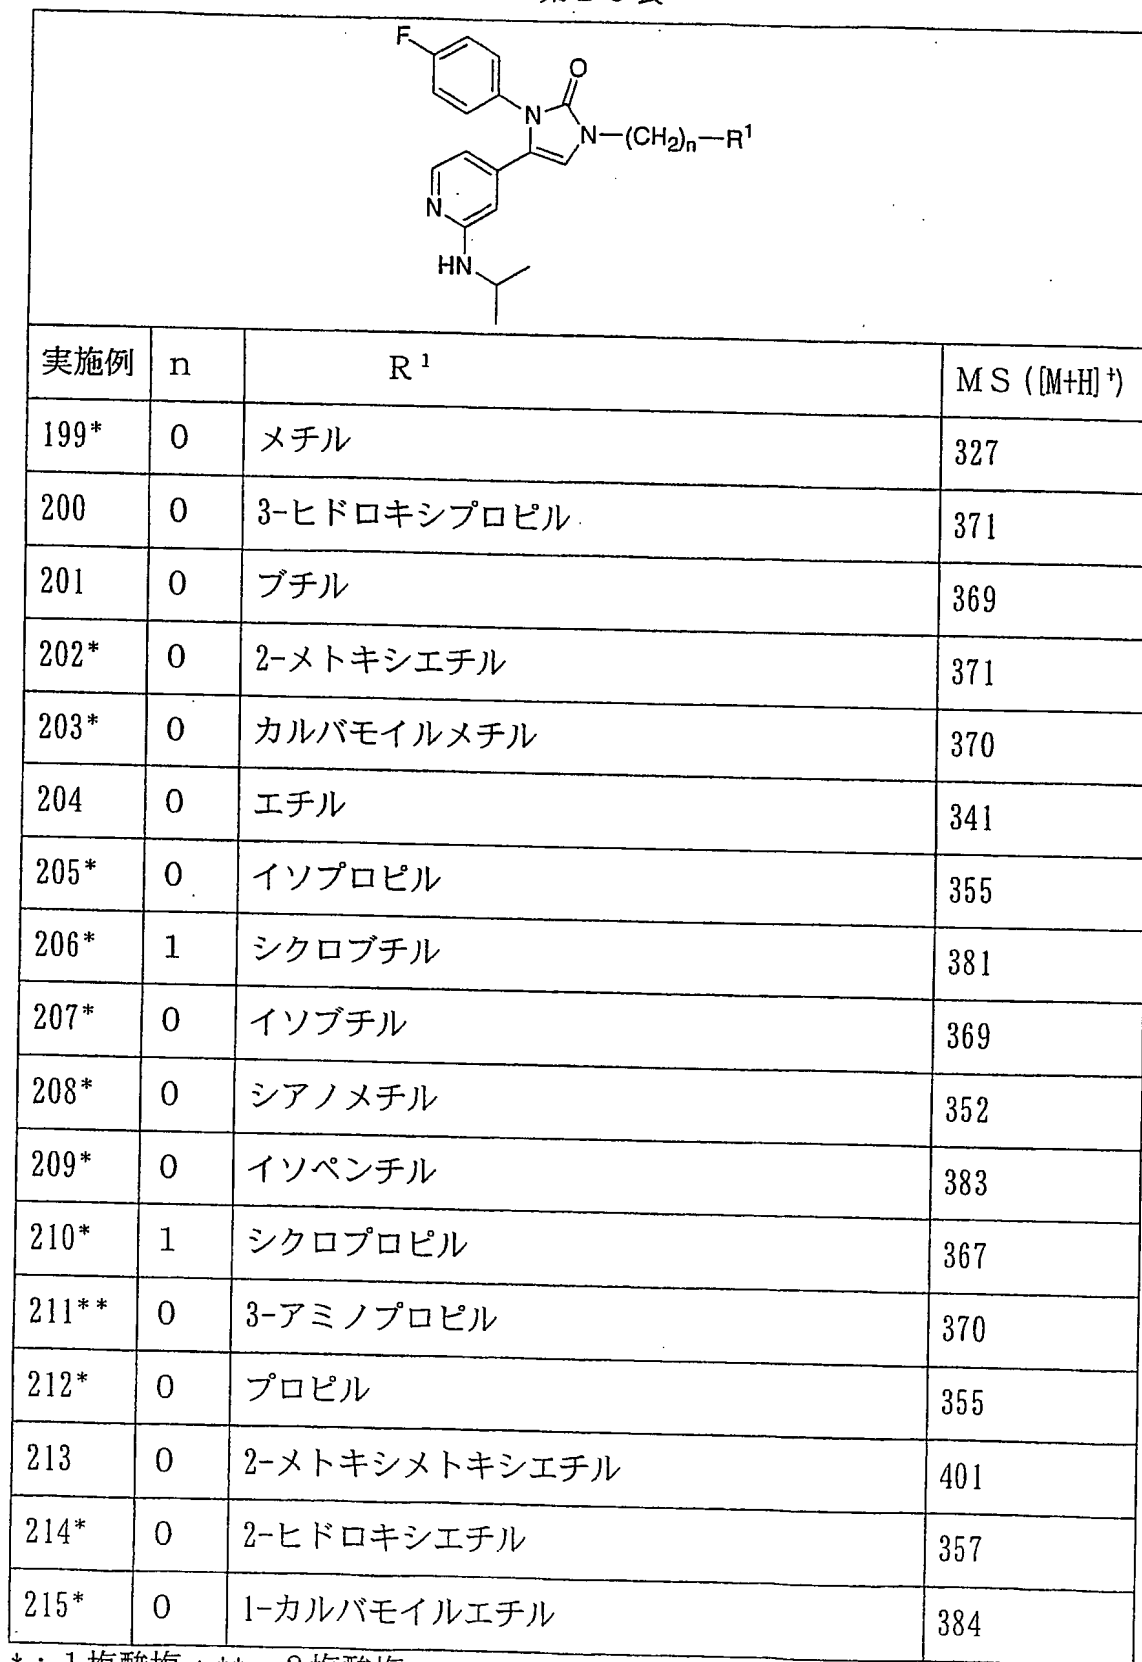 F
O
N
N—(CH₂)ₙ—R¹
N
HN
実施例 n R¹ MS ([M+H]⁺)
199* 0 メチル 327
200 0 3-ヒドロキシプロピル 371
201 0 ブチル 369
202* 0 2-メトキシエチル 371
203* 0 カルバモイルメチル 370
204 0 エチル 341
205* 0 イソプロピル 355
206* 1 シクロブチル 381
207* 0 イソブチル 369
208* 0 シアノメチル 352
209* 0 イソペンチル 383
210* 1 シクロプロピル 367
211** 0 3-アミノプロピル 370
212* 0 プロピル 355
213 0 2-メトキシメトキシエチル 401
214* 0 2-ヒドロキシエチル 357
215* 0 1-カルバモイルエチル 384